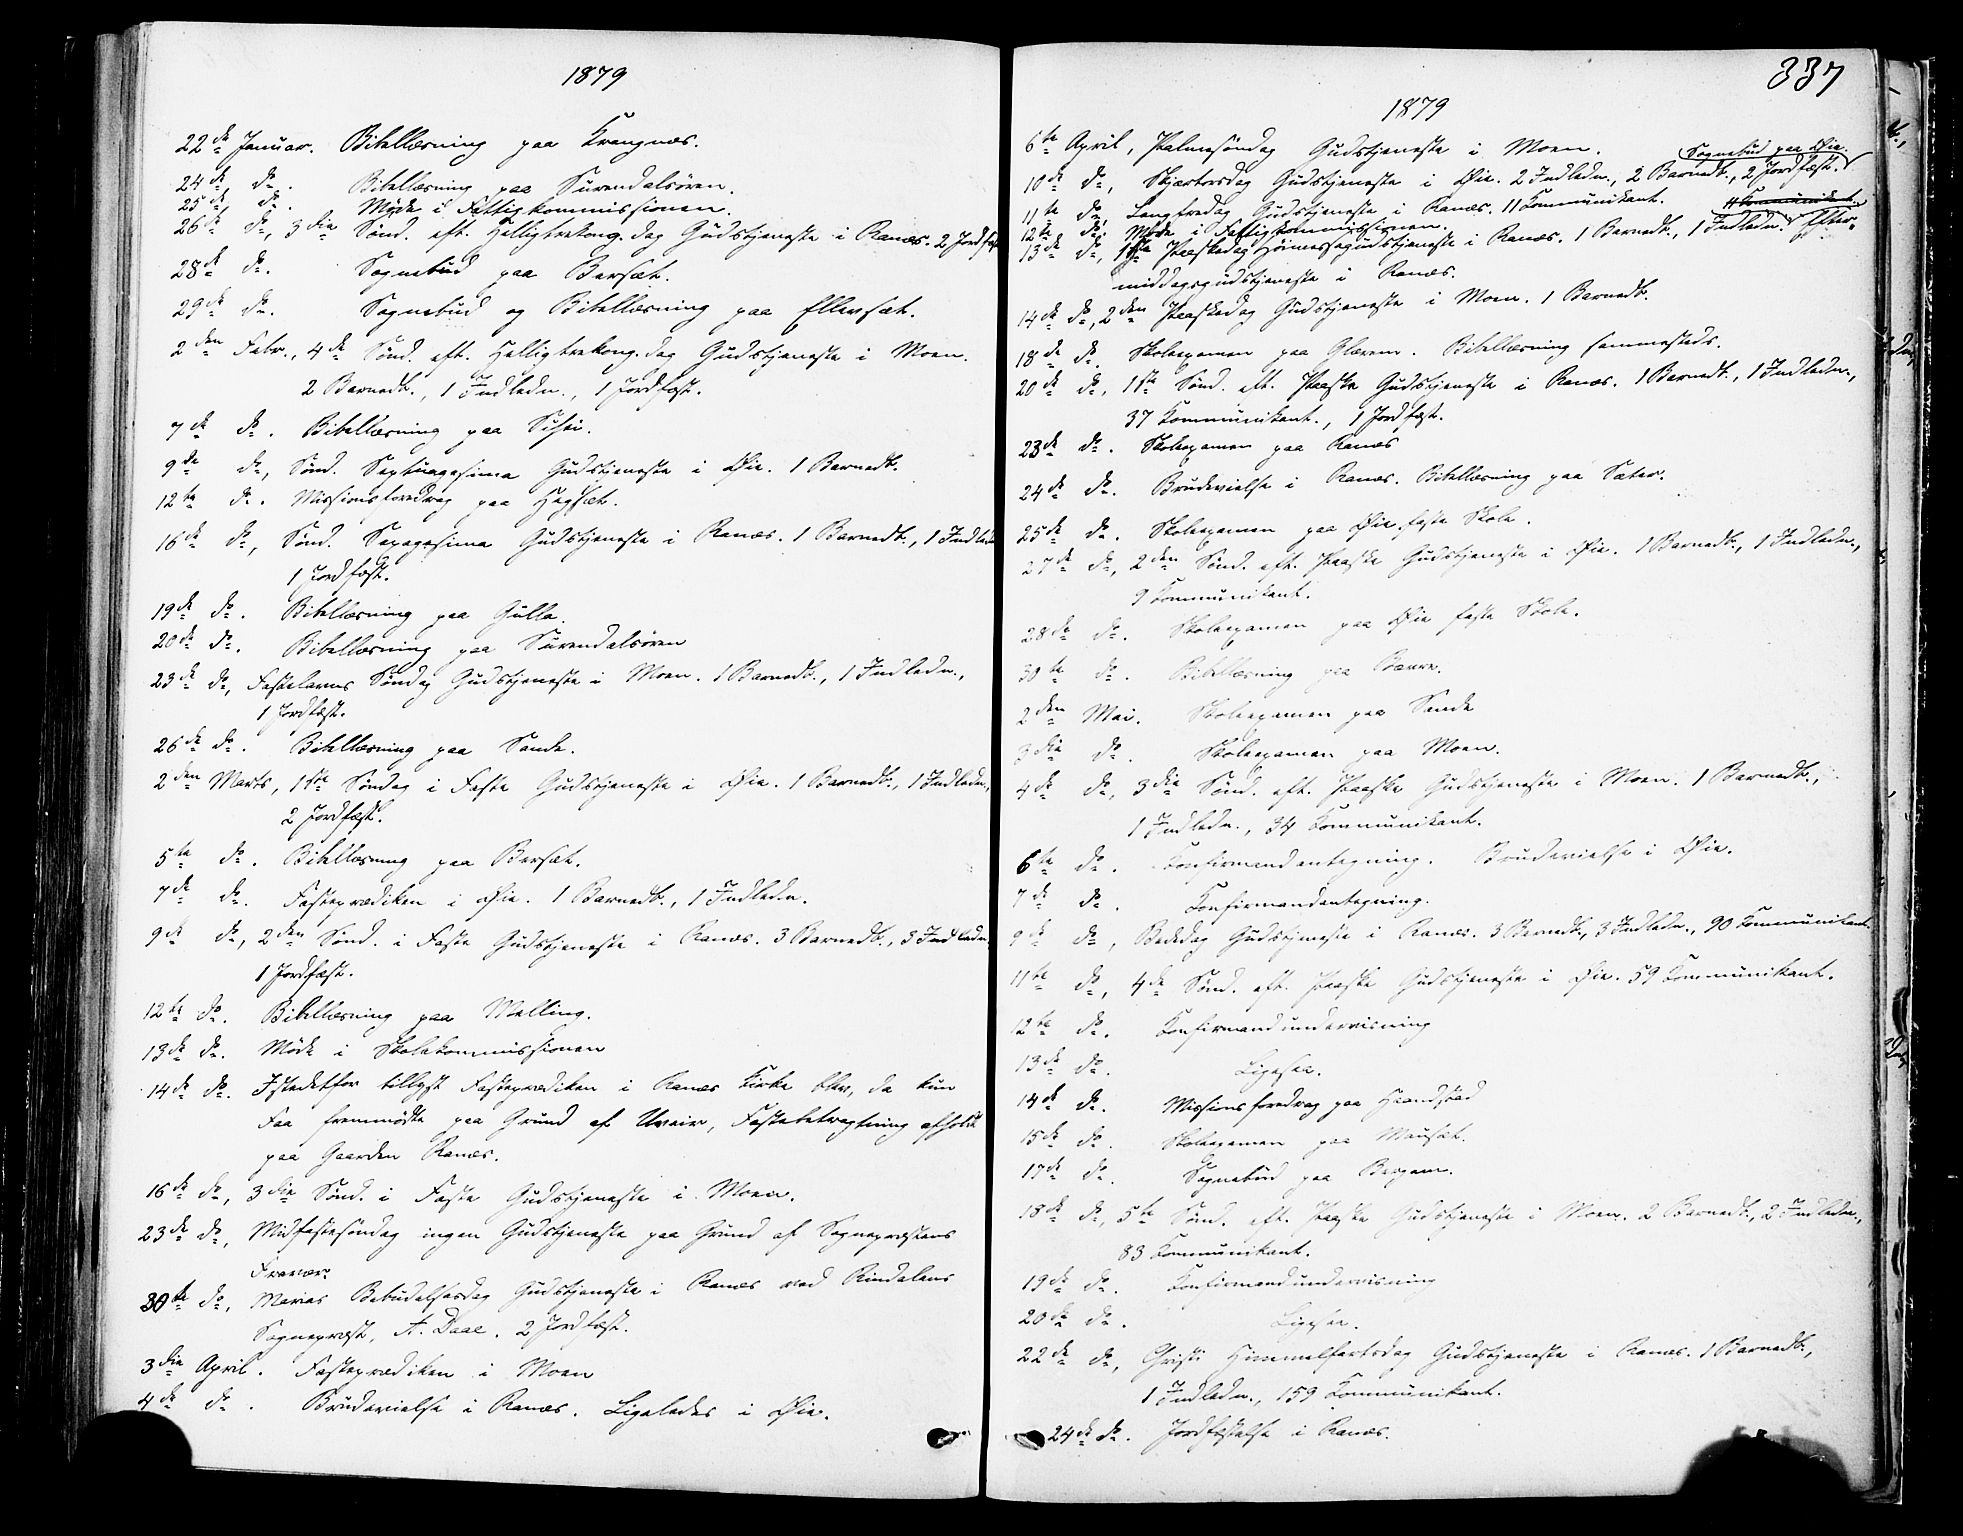 1879
22de Januar. Bibellæsning paa Krangnæs.
24de do. Bibellæsning paa Surendalsören.
25de do. Möde i Fattigkommissionen.
26de do, 3die Sönd. eft. Helligtrekong.dag Gudstjeneste i Ranæs. 2 Jordfæst
28de do. Sognebud paa Bersæt.
29de do. Sognebud og Bibellæsning paa Ellevsæt.
2den Febr., 4de Sönd. eft. Helligtrekong.dag Gudstjeneste i Moen.
2 Barnedb., 1 Indledn., 1 Jordfæst.
7de do. Bibellæsning paa
9de do, Sönd. Septuagesima Gudstjeneste i Öie. 1 Barnedb.
12te do. Missionsforedrag paa Hegsæt.
16de do, Sönd. Sexagesima Gudstjeneste i Ranæs. 1 Barnedb., 1 Indledn
1 Jordfæst.
19de do. Bibellæsning paa Gulla.
20de do. Bibellæsning paa Surendalsören
23de do, Fastelavns Söndag Gudstjeneste i Moen. 1 Barnedb., 1 Indledn.,
1 Jordfæst.
26de do. Bibellæsning paa Sande.
2den Marts, 1ste Söndag i Faste Gudstjeneste i Öie. 1 Barnedb., 1 Indledn.,
2 Jordfæst.
5te do. Bibellæsning paa Bersæt.
7de do. Fasteprædiken i Öie. 1 Barnedb., 1 Indledn.
9de do, 2den Sönd. i Faste Gudstjeneste i Ranæs. 3 Barnedb., 3 Indledn.
1 Jordfæst.
12te do. Bibellæsning paa Melling.
13de do. Möde i Skolekommissionen
14de do. Istedetfor tillyst Fasteprædiken i Ranæs Kirke blev, da kun
Faa fremmödte paa Grund af Uveir, Fastebetragtning afholdt
paa Gaarden Ranæs.
16de do, 3die Sönd. i Faste Gudstjeneste i Moen.
23de do, Midfastesöndag ingen Gudstjeneste paa Grund af Sognepræstens
Fravær.
30te do, Marias Bebudelsesdag Gudstjeneste i Ranæs ved Rindalens
Sognepræst, A. Daae. 2 Jordfæst.
3die April. Fasteprædiken i Moen
4de do. Brudevielse i Ranæs. Ligeledes i Öie.
337
1879
6te April, Palmesöndag Gudstjeneste i Moen.
Sognebud paa Öie.
10de do, Skjærtorsdag Gudstjeneste i Öie. 2 Indledn., 2 Barnedb., 2 Jordfæst.
11te do, Langfredag Gudstjeneste i Ranæs. 11 Kommunikant. 11 Kommunikant.
12te do. Möde i Fattigkommissionen.
13de do, 1ste Paaskedag Höimessegudstjeneste i Ranæs. 1 Barnedb., 1 Indledn. Efter-
middagsgudstjeneste i Ranæs.
14de do, 2den Paaskedag Gudstjeneste i Moen. 1 Barnedb.
18de do. Skoleexamen paa Glærem. Bibellæsning sammesteds.
20de do, 1ste Sönd. eft. Paaske Gudstjeneste i Ranæs. 1 Barnedb., 1 Indledn.,
37 Kommunikant., 1 Jordfæst.
23de do. Skoleexamen paa Ranæs
24de do. Brudevielse i Ranæs. Bibellæsning paa Sæter.
25de do. Skoleexamen paa Öie faste Skole.
27de do, 2den Sönd. eft. Paaske Gudstjeneste i Öie. 1 Barnedb., 1 Indledn.,
9 Kommunikant.
28de do. Skoleexamen paa Öie faste Skole.
30te do. Bibellæsning paa Bævre.
2den Mai. Skoleexamen paa Sande
3die do. Skoleexamen paa Moen.
4de do, 3die Sönd. eft. Paaske Gudstjeneste i Moen. 1 Barnedb.,
1 Indledn., 34 Kommunikant.
6te do. Konfirmandantegning. Brudevielse i Öie.
7de do. Konfirmandantegning.
9de do, Bededag Gudstjeneste i Ranæs. 3 Barnedb., 3 Indledn., 90 Kommunikant.
11te do, 4de Sönd. eft. Paaske Gudstjeneste i Öie. 59 Kommunikant.
12te do. Konfirmandundervisning
13de do. Ligesaa.
14de do. Missionsforedrag paa Haandstad
15de do. Skoleexamen paa Mausæt.
17de do. Sognebud paa Bergem.
18de do, 5te Sönd. eft. Paaske Gudstjeneste i Moen. 2 Barnedb., 2 Indledn.,
83 Kommunikant.
19de do. Konfirmandundervisning
20de do. Ligesaa.
22de do, Christi Himmelfartsdag Gudstjeneste i Ranæs. 1 Barnedb.,
1 Indledn., 159 Kommunikant.
24de do. Jordfæstelse i Ranæs.